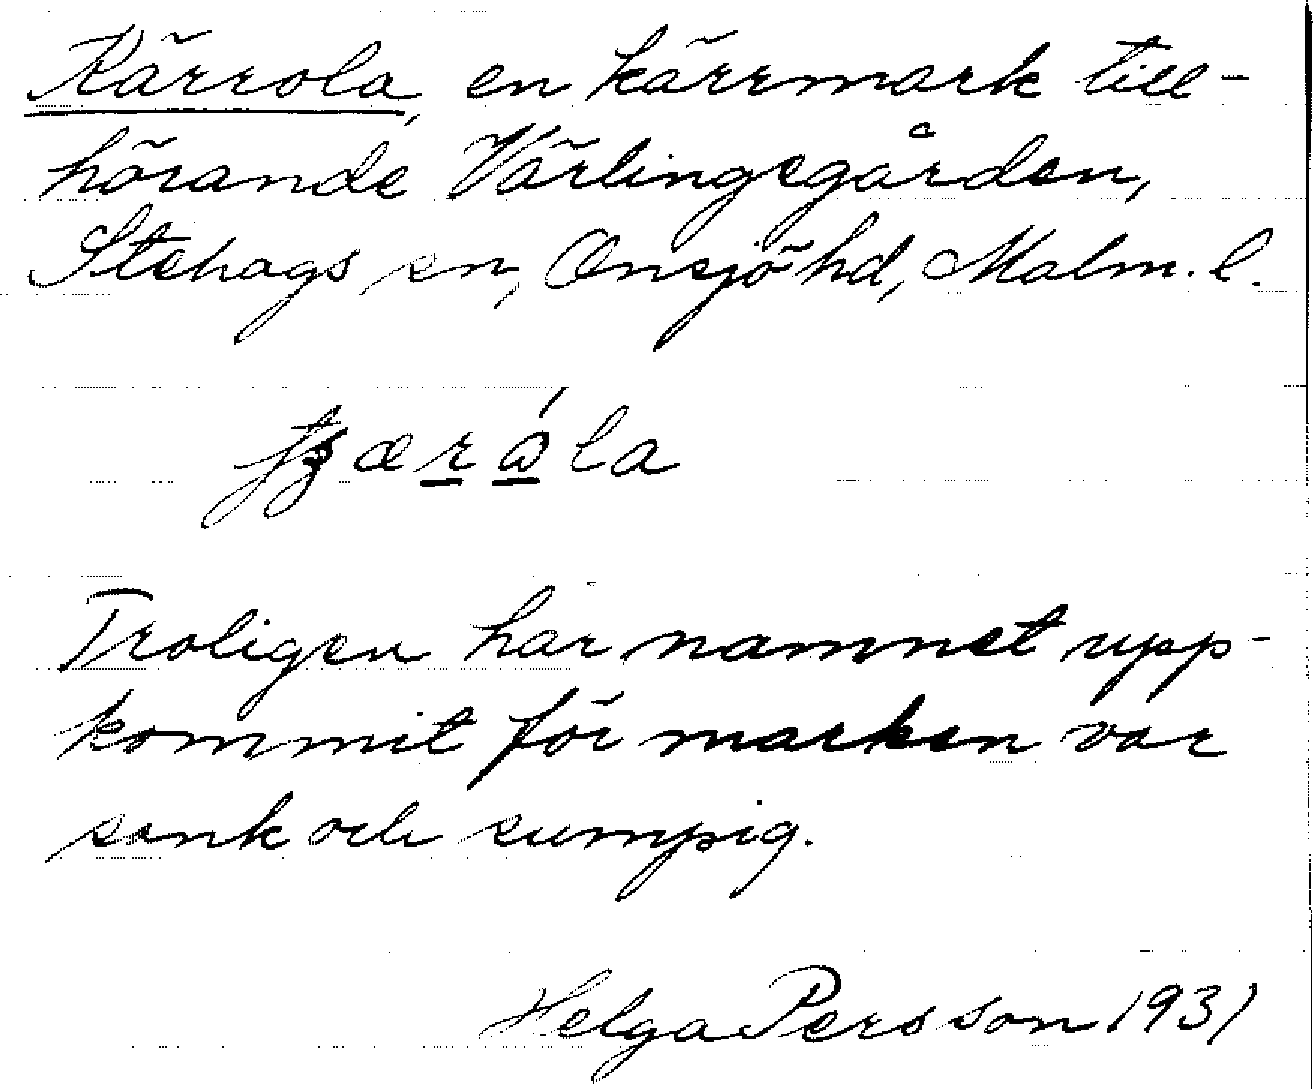 Kärrola, en kärrmark till-
hörande Värlingegården,
Stehags sn, Onsjö hd, Malm. l.
Troligen har namnet upp-
kommit för marken var
sank och sumpig.
Helga Persson 1931